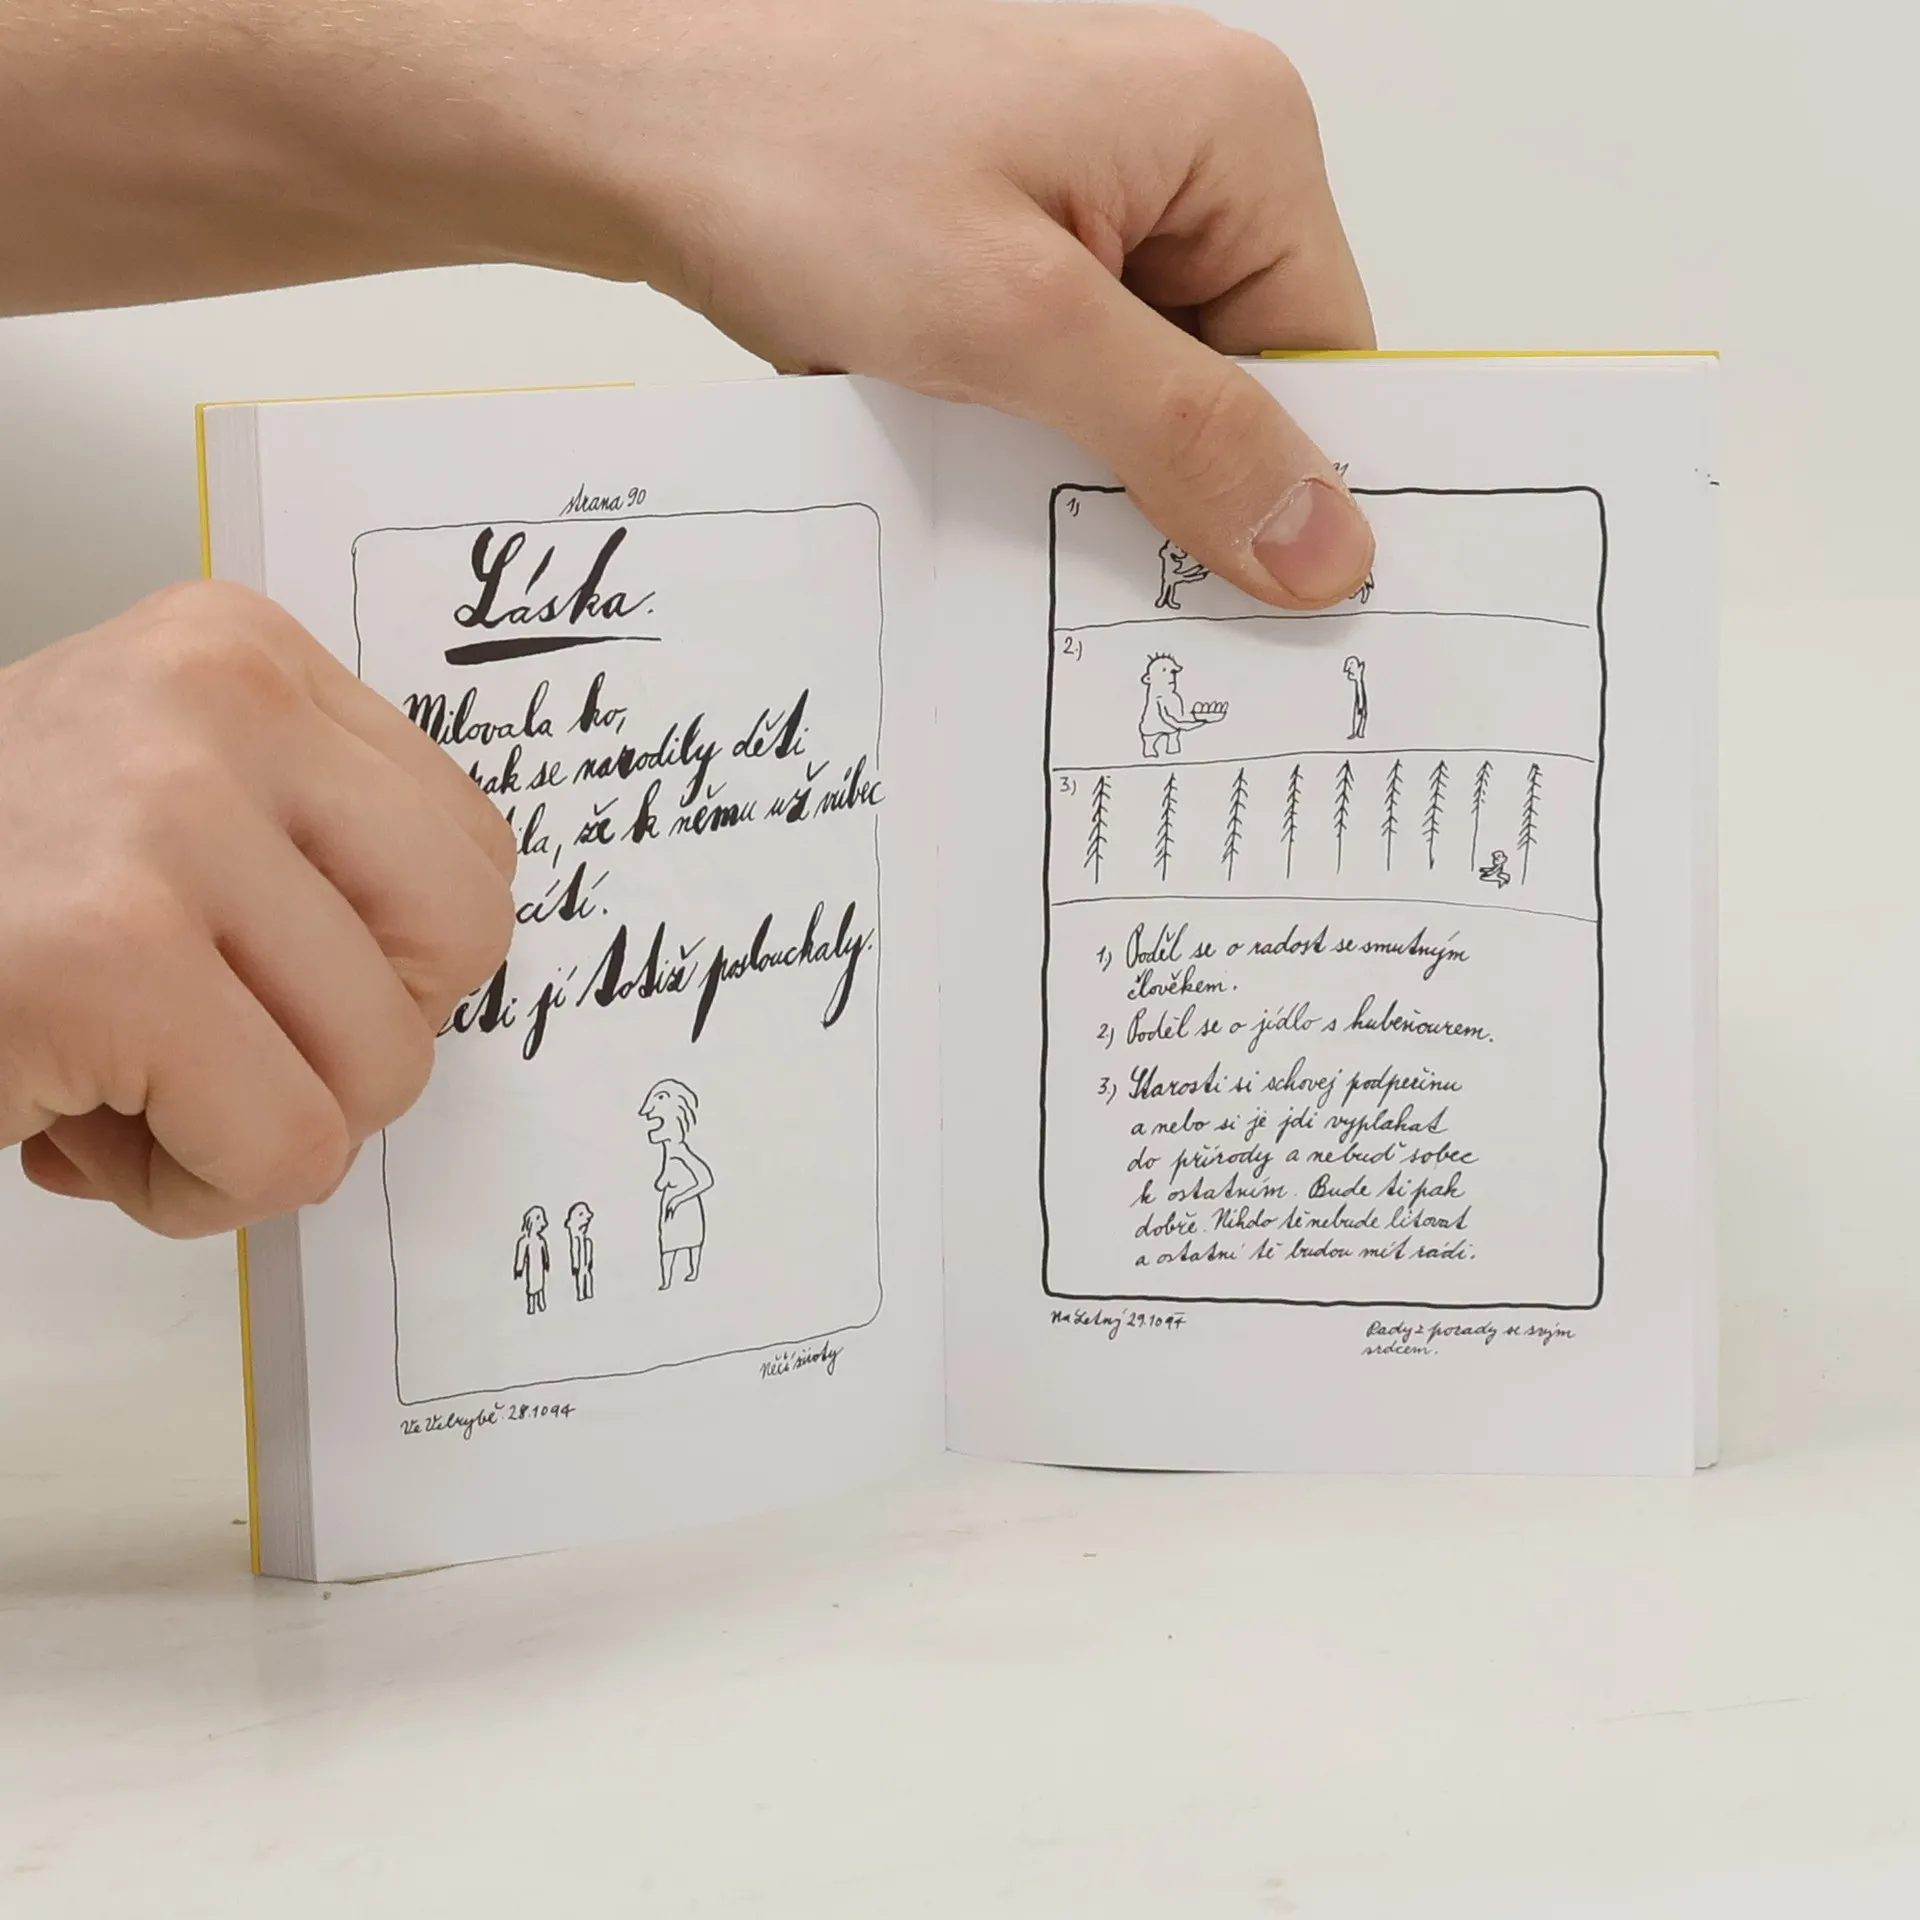 strana 90
Láska.
Milovala ho,
pak se narodily děti
, že k němu už vůbec
cítí.
jí totiž poslouchaly.
Ve Velrybě 28.10 94
1)
2.)
3.)
1.) Poděl se o radost se smutným
člověkem.
2.) Poděl se o jídlo s hubeňourem.
3.) Starosti si schovej pod peřinu
a nebo si je jdi vyplakat
do přírody a nebuď sobec
k ostatním. Bude ti pak
dobře. Nikdo tě nebude litovat
a ostatní tě budou mít rádi.
Na Letný 29.10 94
Rady z porady se svým
srdcem.